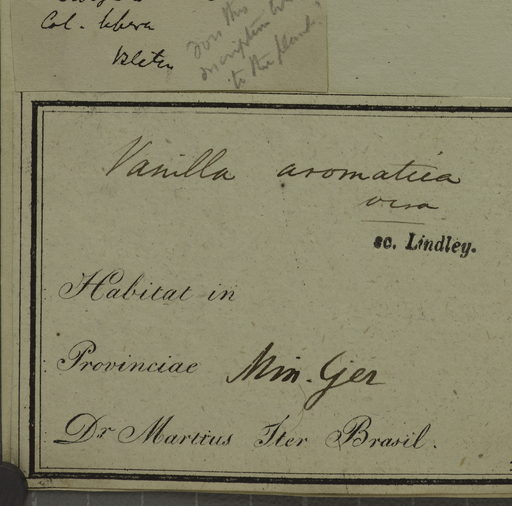 Col. libera
Does this
inscription
to the plant?
Vanilla aromatica
vera
sc. Lindley.
Habitat in
Provinciae Min. Ger
Dr Martius Iter Brasil.